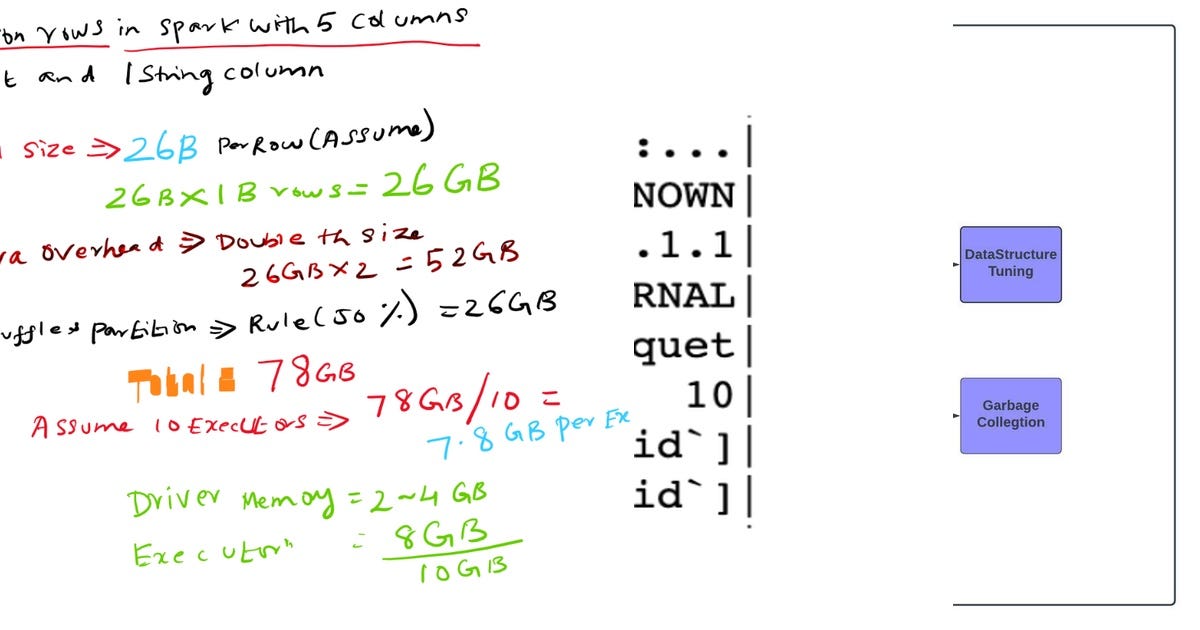 on rows in spark with 5 columns
t and 1 String column
size ⇒ 26B Per Row (Assume)
26B × 1 B rows = 26 GB
a overhead ⇒ Double th size
26GB × 2 = 52GB
uffle & Partition ⇒ Rule (50 %) = 26GB
Total = 78GB
Assume 10 Executors ⇒ 78GB/10 =
7.8 GB per Ex
Driver Memoy = 2~4 GB
Executor" = 8GB
10GB
:...|
NOWN|
.1.1|
RNAL|
quet|
10|
id`]|
id`]|
DataStructure
Tuning
Garbage
Collegtion